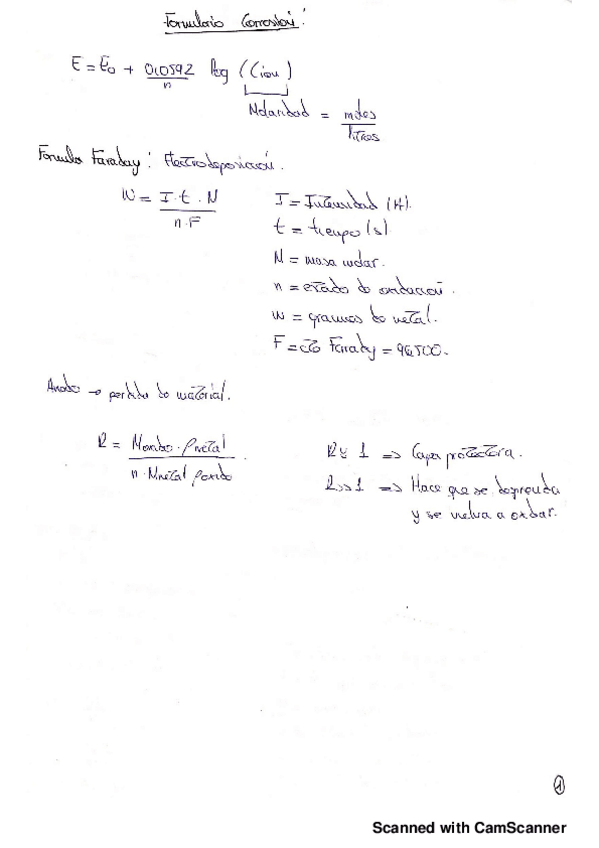 Formulario Corrosión:
E = E0 + 0,0592/n log (Cion)
Molaridad = moles/litros
Formula Faraday: Electrodeposición.
W = I·t·M / n·F
I = Intensidad (A).
t = tiempo (s).
M = masa molar.
n = estado de oxidación.
w = gramos de metal.
F = cte Faraday = 96.500.
Anodo → perdida de material.
R = Moxido · ρmetal / n · Mmetal ρoxido
R ≈ 1 => Capa protectora.
R >> 1 => Hace que se desprenda
y se vuelva a oxidar.
1
Scanned with CamScanner